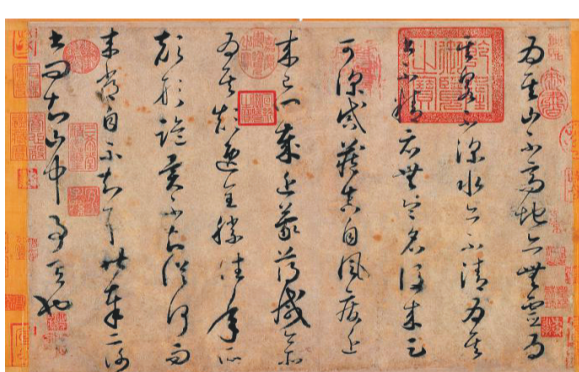 为其山不高地亦无灵为
其泉不深水亦不清为其
书不精亦无令名后来足
可深戒藏真自风废近
来已四岁近蒙薄减今亦
为其颠逸全胜往年所
颠形诡异不知从何而
来常自不知耳昨奉二谢
书问知山中事有也